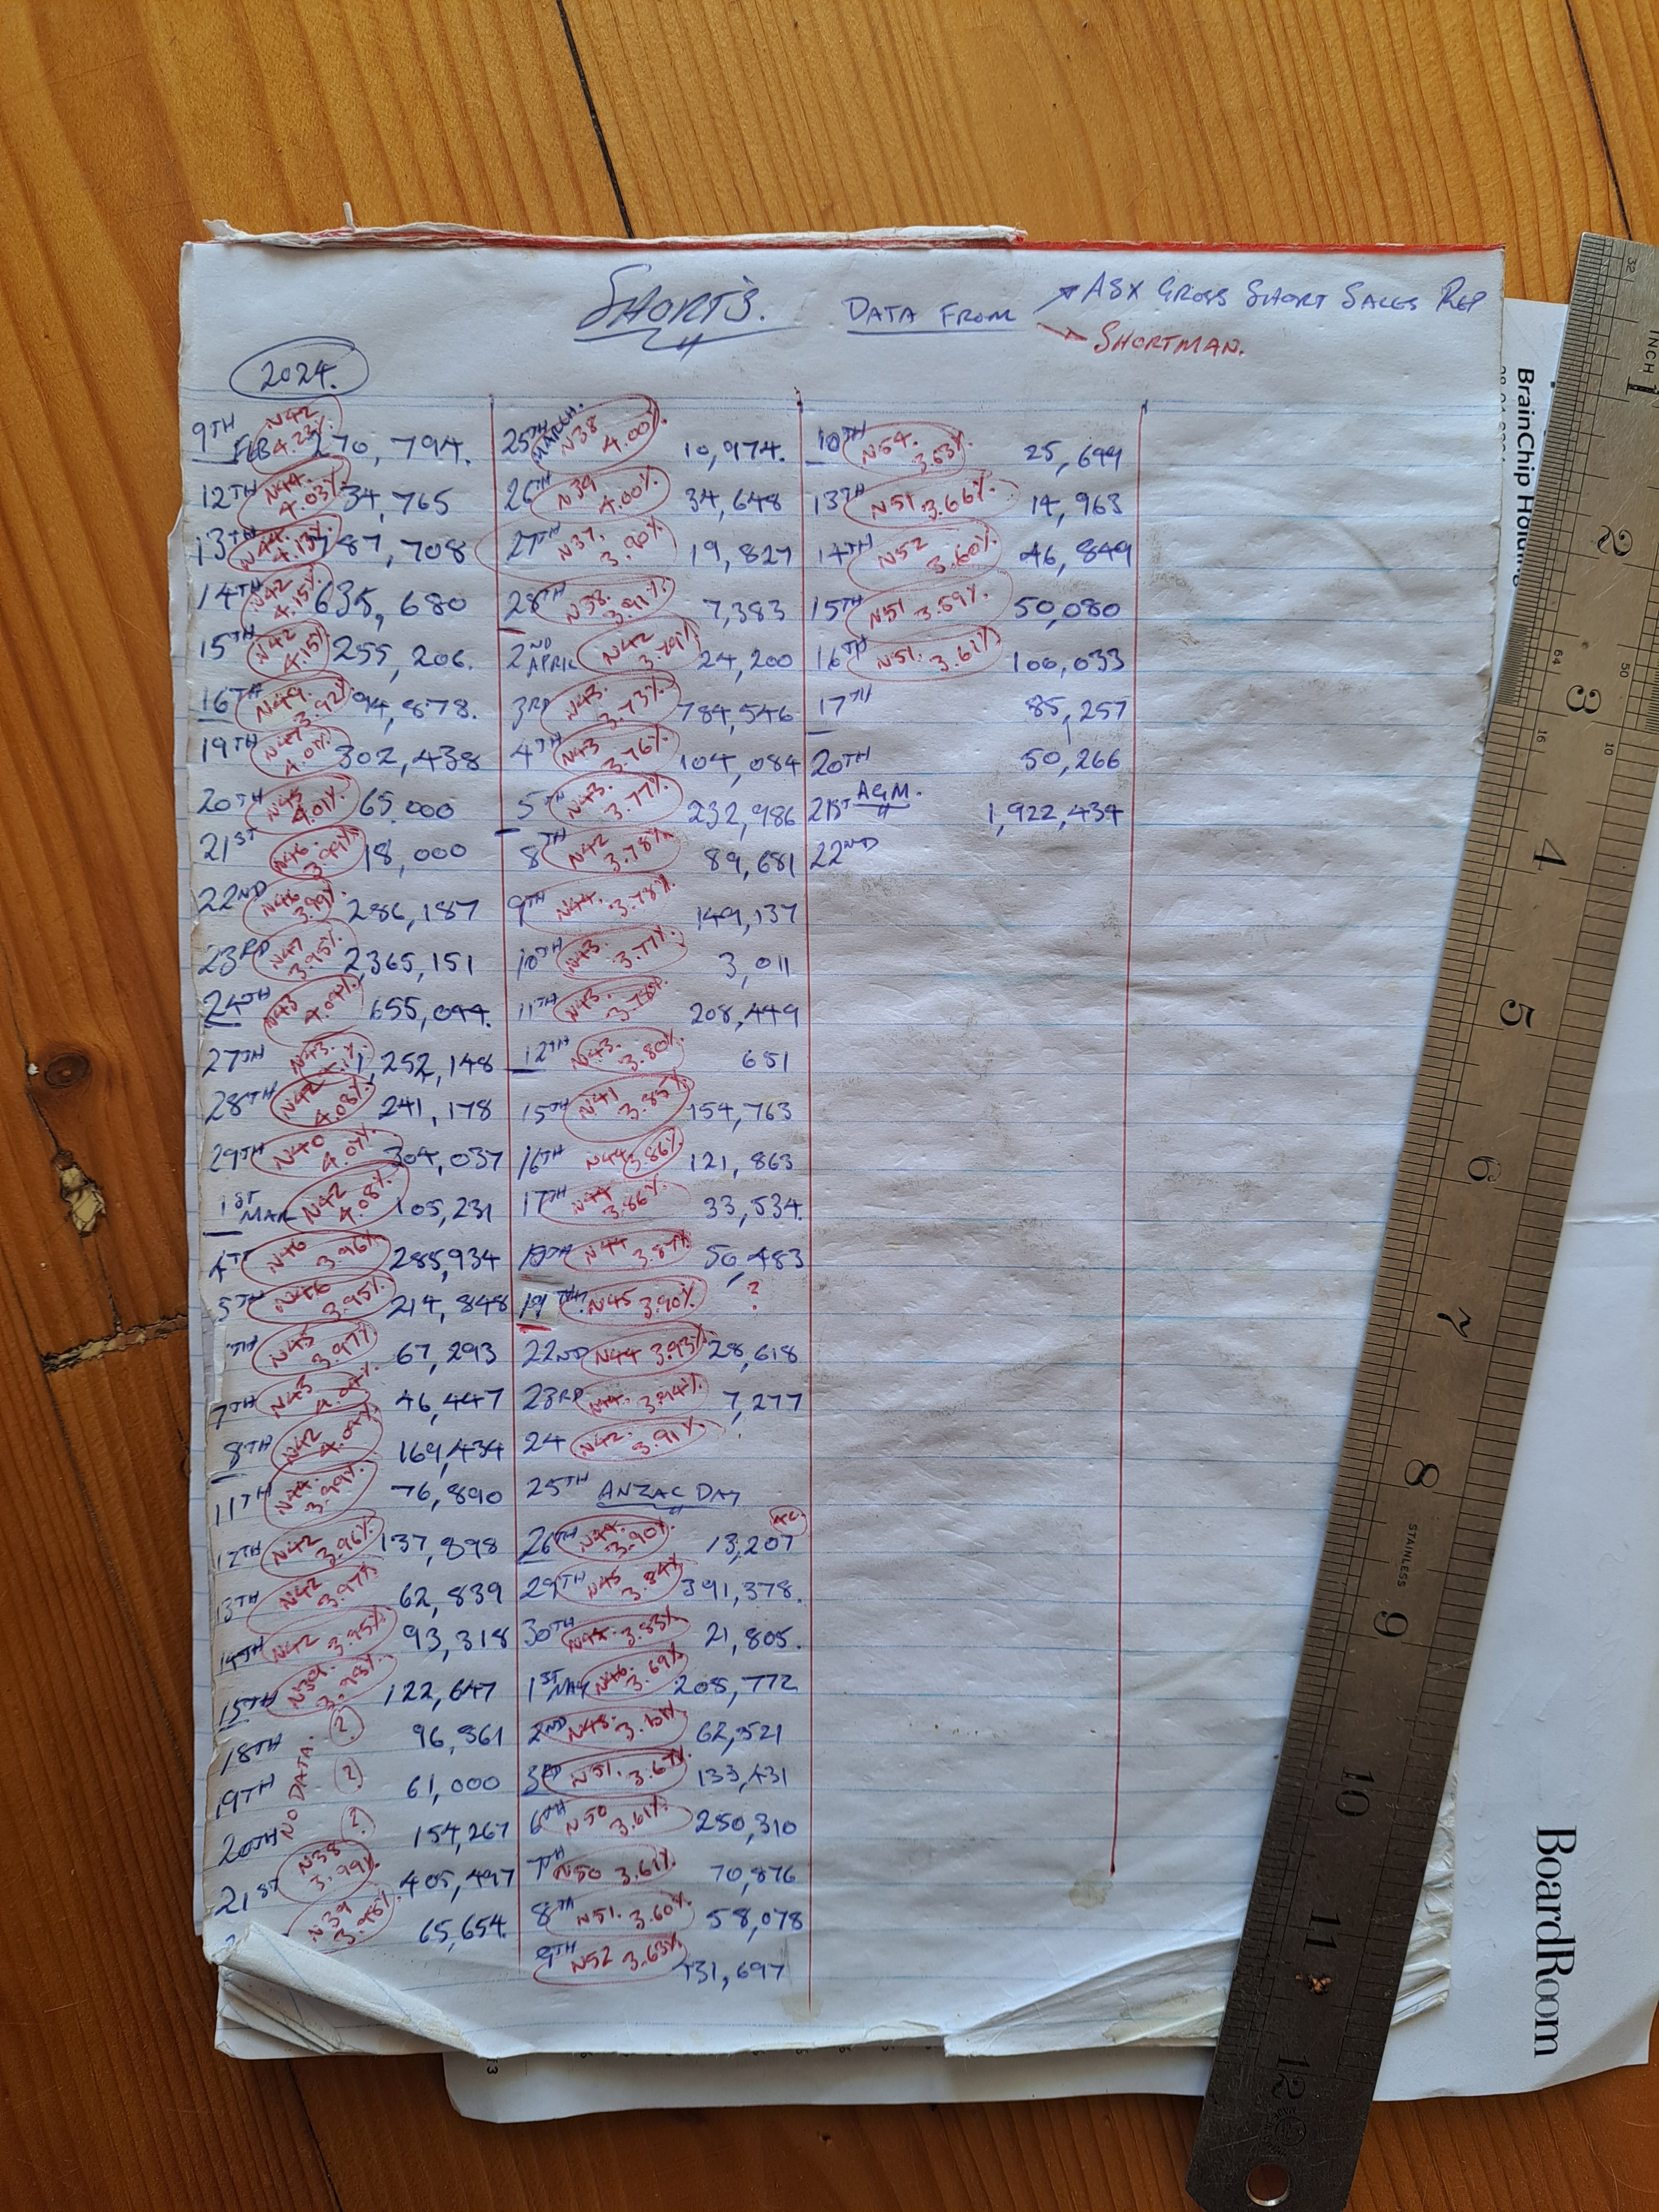 SHORT'S.
DATA FROM
ASX GROSS SHORT SALES REP
SHORTMAN.
2024.
9TH FEB N42 4.23% 270,794.
12TH N44. 4.03% 34,765
13TH N44. 4.13% 787,708
14TH N42 4.15% 635,680
15TH N42 4.15% 255,206.
16TH N49. 3.92% 94,878.
19TH N47 4.01% 302,438
20TH N45 4.01% 65,000
21ST N46. 3.99% 18,000
22ND N46 3.99% 286,187
23RD N47 3.95% 2,365,151
24TH N43 4.09% 655,044.
27TH N43. 1,252,148
28TH N42 4.08% 241,178
29TH N40 4.07% 304,037
1ST MAR N42 4.08% 105,231
4TH N46 3.96% 285,934
5TH N46 3.95% 214,848
TH N45 3.97% 67,293
7TH N43 4.04% 46,447
8TH N42 4.09% 169,434
11TH N44. 3.99% 76,890
12TH N42 3.96% 137,898
13TH N42 3.97% 62,839
14TH N42 3.95% 93,318
15TH N39. 3.98% 122,647
18TH NO DATA. ? 96,361
19TH ? 61,000
20TH ? 154,267
21ST N38 3.99% 405,497
N39 3.98% 65,654
25TH MARCH. N38 4.00% 10,974.
26TH N39 4.00% 34,648
27TH N37. 3.90% 19,827
28TH N38. 3.91% 7,383
2ND APRIL N42 3.79% 24,200
3RD N43. 3.73% 784,546
4TH N43 3.76% 104,084
5TH N43. 3.77% 232,986
8TH N42 3.78% 89,681
9TH N44. 3.78% 149,137
10TH N43. 3.77% 3,011
11TH N43. 208,449
12TH N43. 3.80% 651
15TH N41 3.85% 154,763
16TH N44. 3.86% 121,863
17TH N44 3.86% 33,534.
18TH N44 3.87% 50,483
19TH N45 3.90% ?
22ND N44 3.93% 28,618
23RD N44. 3.94% 7,277
24 N42. 3.91%
25TH ANZAC DAY
26TH N44. 3.90% 13,207
29TH N45 3.84% 391,378.
30TH 3.83% 21,805.
1ST MAY N46. 3.69% 208,772
2ND N48. 62,521
3RD N51. 3.67% 133,431
6TH N50 3.61% 250,310
7TH N50 3.61% 70,876
8TH N51. 3.60% 58,078
9TH N52 3.63% 131,697
10TH N54. 3.53% 25,699
13TH N51 3.66% 14,963
14TH N52 3.60% 46,849
15TH N51 3.59% 50,080
16TH N51. 3.61% 100,033
17TH 85,257
20TH 50,266
21ST AGM. 1,922,434
22ND
BrainChip Holding
BoardRoom
INCH
1
2
3
4
5
6
7
8
STAINLESS
9
10
11
12
32
64
50
16
10